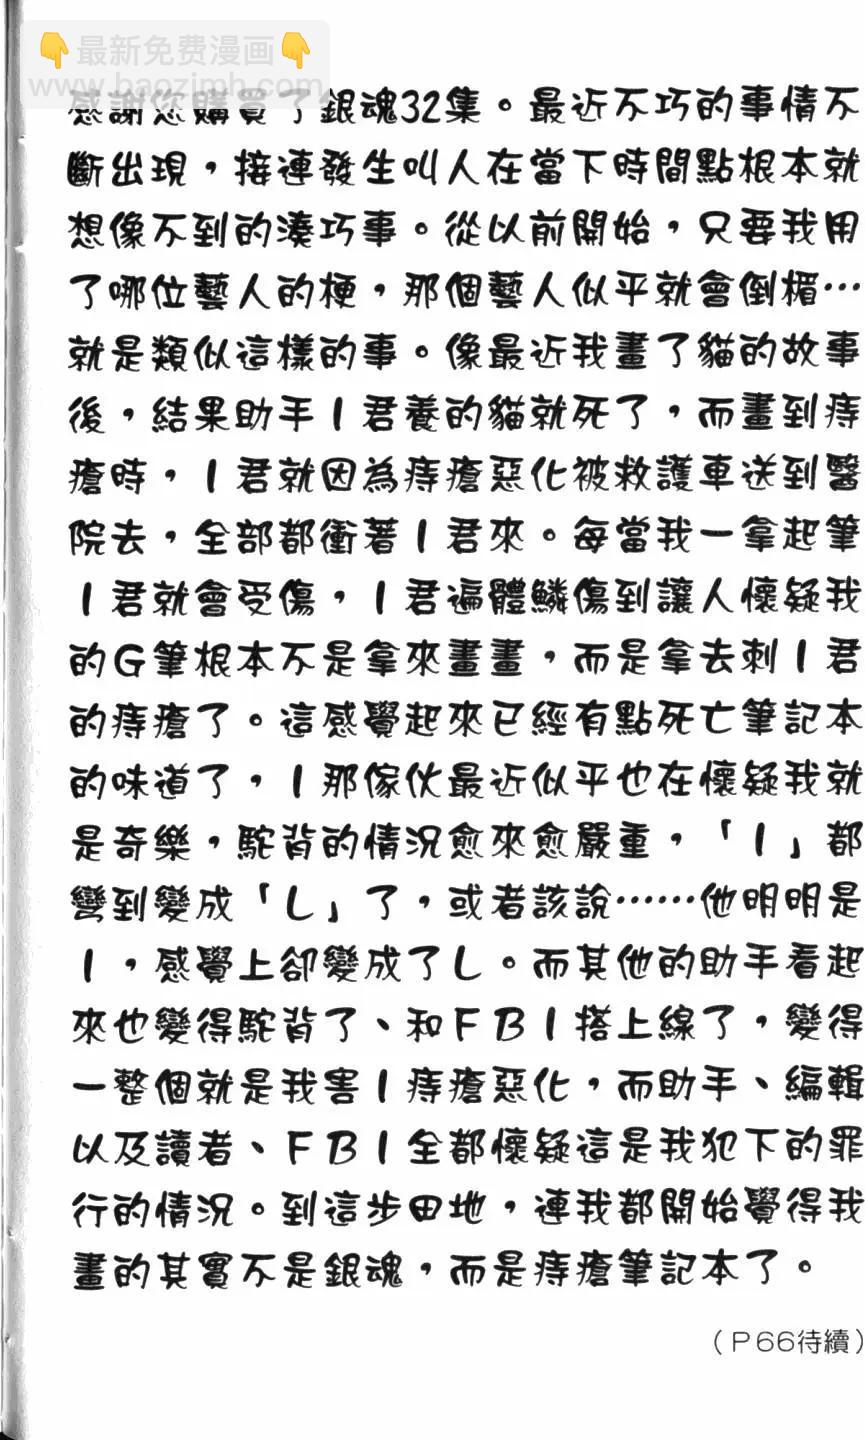 最新免费漫画
www.baozimh.com
感謝您購買了銀魂32集。最近不巧的事情不
斷出現，接連發生叫人在當下時間點根本就
想像不到的湊巧事。從以前開始，只要我用
了哪位藝人的梗，那個藝人似乎就會倒楣…
就是類似這樣的事。像最近我畫了貓的故事
後，結果助手I君養的貓就死了，而畫到痔
瘡時，I君就因為痔瘡惡化被救護車送到醫
院去，全部都衝著I君來。每當我一拿起筆
I君就會受傷，I君遍體鱗傷到讓人懷疑我
的G筆根本不是拿來畫畫，而是拿去刺I君
的痔瘡了。這感覺起來已經有點死亡筆記本
的味道了，I那傢伙最近似乎也在懷疑我就
是奇樂，駝背的情況愈來愈嚴重，「I」都
彎到變成「L」了，或者該說……他明明是
I，感覺上卻變成了L。而其他的助手看起
來也變得駝背了、和FBI搭上線了，變得
一整個就是我害I痔瘡惡化，而助手、編輯
以及讀者、FBI全都懷疑這是我犯下的罪
行的情況。到這步田地，連我都開始覺得我
畫的其實不是銀魂，而是痔瘡筆記本了。
（P66待續）